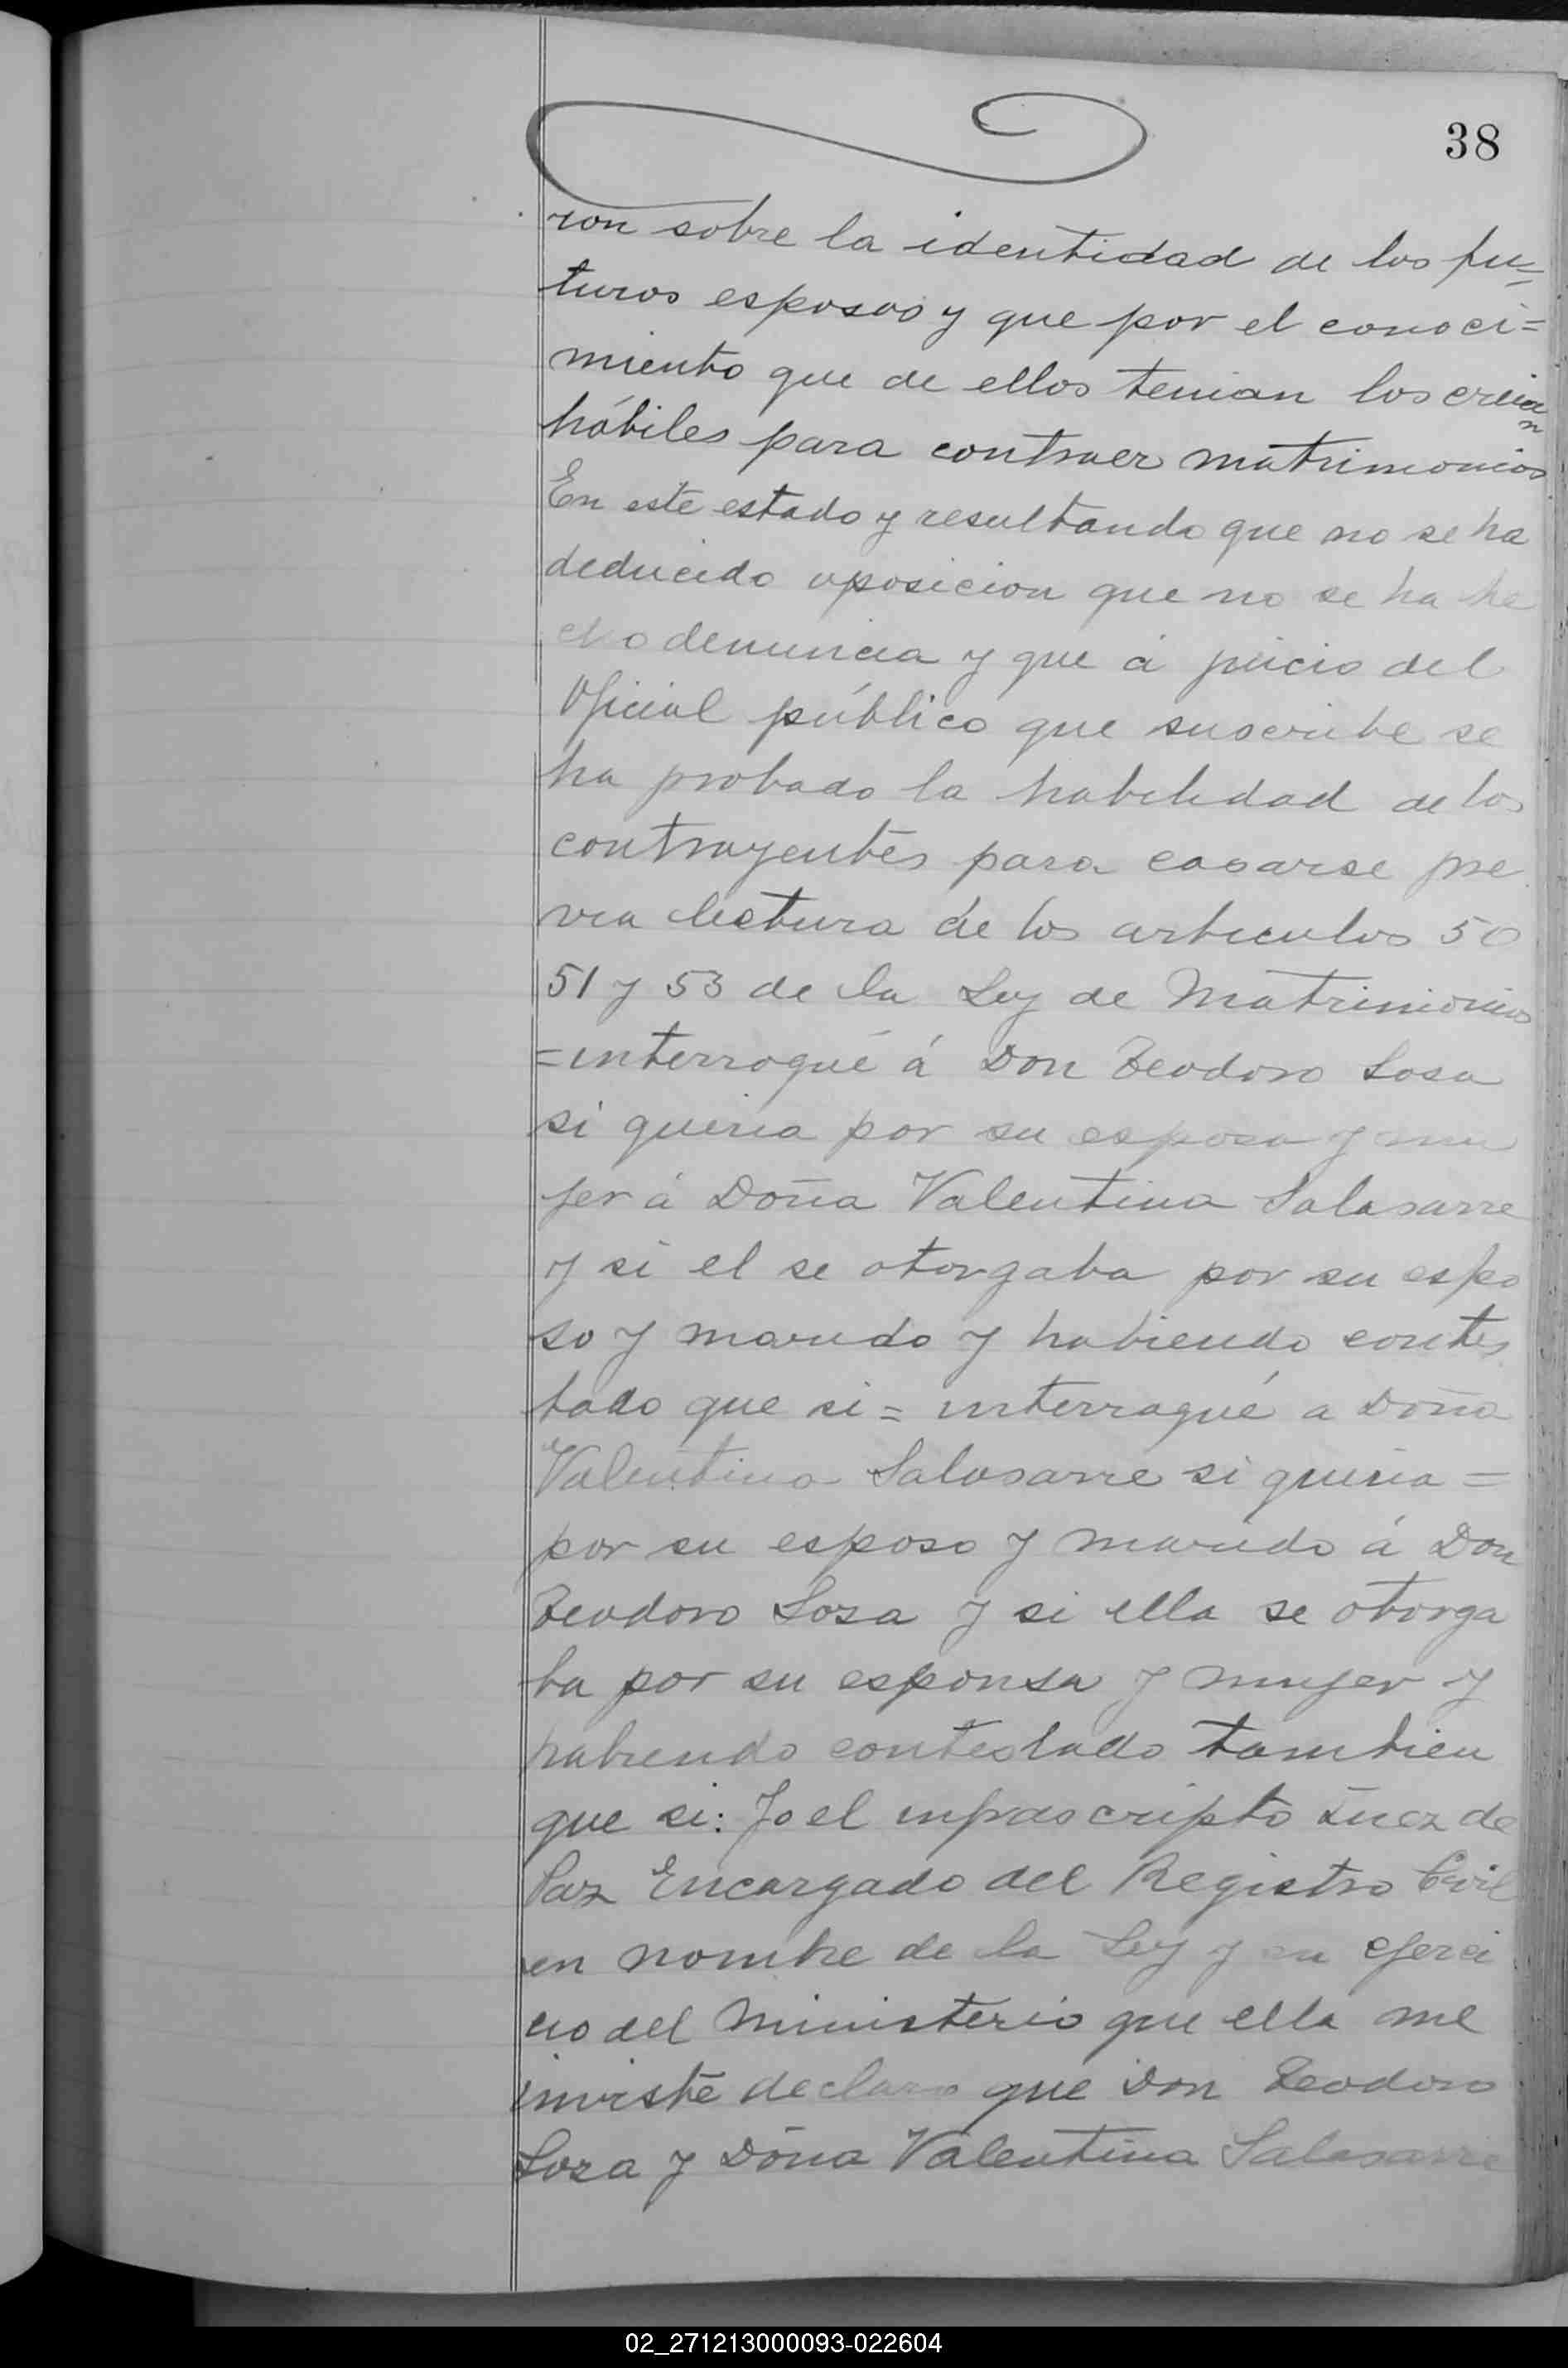 38
ron sobre la identidad de los fu=
turos esposos y que por el conoci=
miento que de ellos tenian los creian
hábiles para contraer matrimonio
En este estado y resultando que no se ha
deducido oposicion que no se ha he
cho denuncia y que á juicio del
Oficial público que suscribe se
ha probado la habilidad de los
contrayentes para casarse pre
via lectura de los articulos 50
51 y 53 de la Ley de Matrimonio
=interrogué á Don Teodoro Sosa
si queria por su esposa y mu
jer á Doña Valentina Salasarre
y si el se otorgaba por su espo
so y marido y habiendo contes
tado que si= interrogué a Doña
Valentina Salasarre si queria =
por su esposo y marido á Don
Teodoro Sosa y si ella se otorga
ba por su esponsa y mujer y
habiendo contestado tambien
que si: Yo el infrascripto Juez de
Paz Encargado del Registro Civil
en nombre de la Ley y en ejerci
cio del ministerio que ella me
inviste declaro que Don Teodoro
Sosa y Doña Valentina Salasarre
02_271213000093-022604